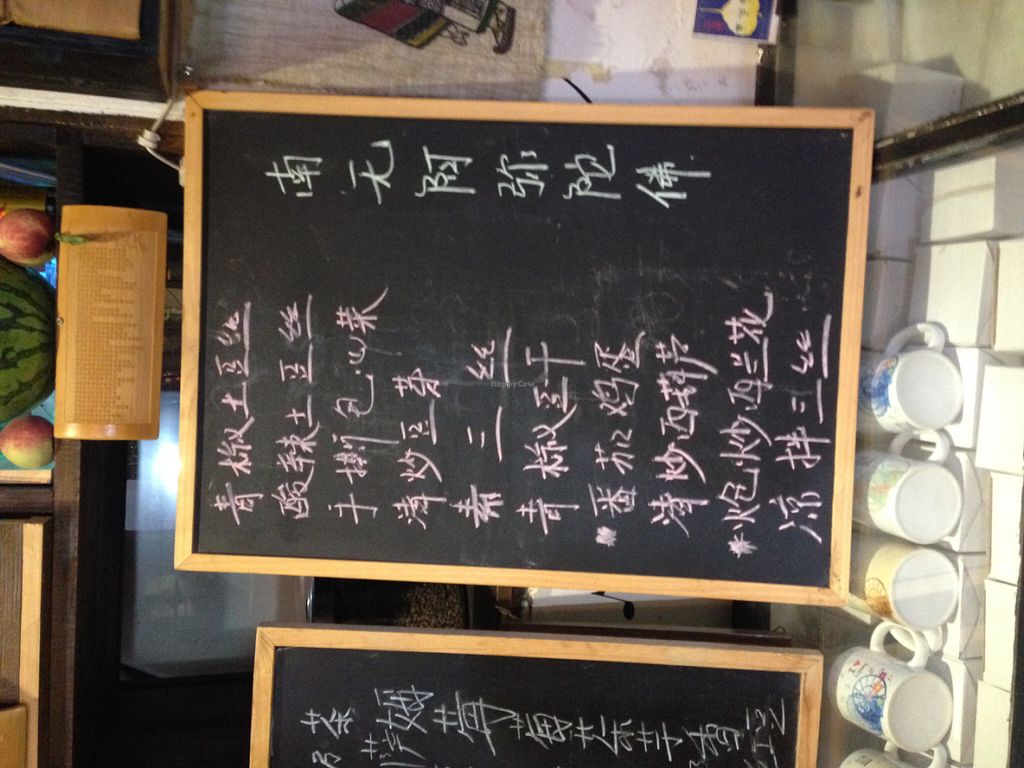 南无阿弥陀佛
青椒土豆丝
酸辣土豆丝
手撕包心菜
清炒豆芽
素三丝
青椒豆干
*番茄鸡蛋
清炒西葫芦
*炮炒西兰花
凉拌三丝
HappyCow